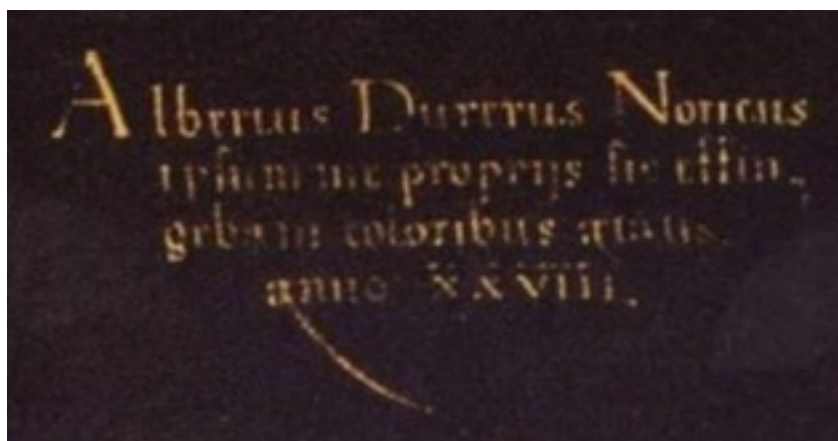 Albertus Durerus Noricus
ipsum me proprijs sic effin,
gebam coloribus ætatis.
anno XXVIII.